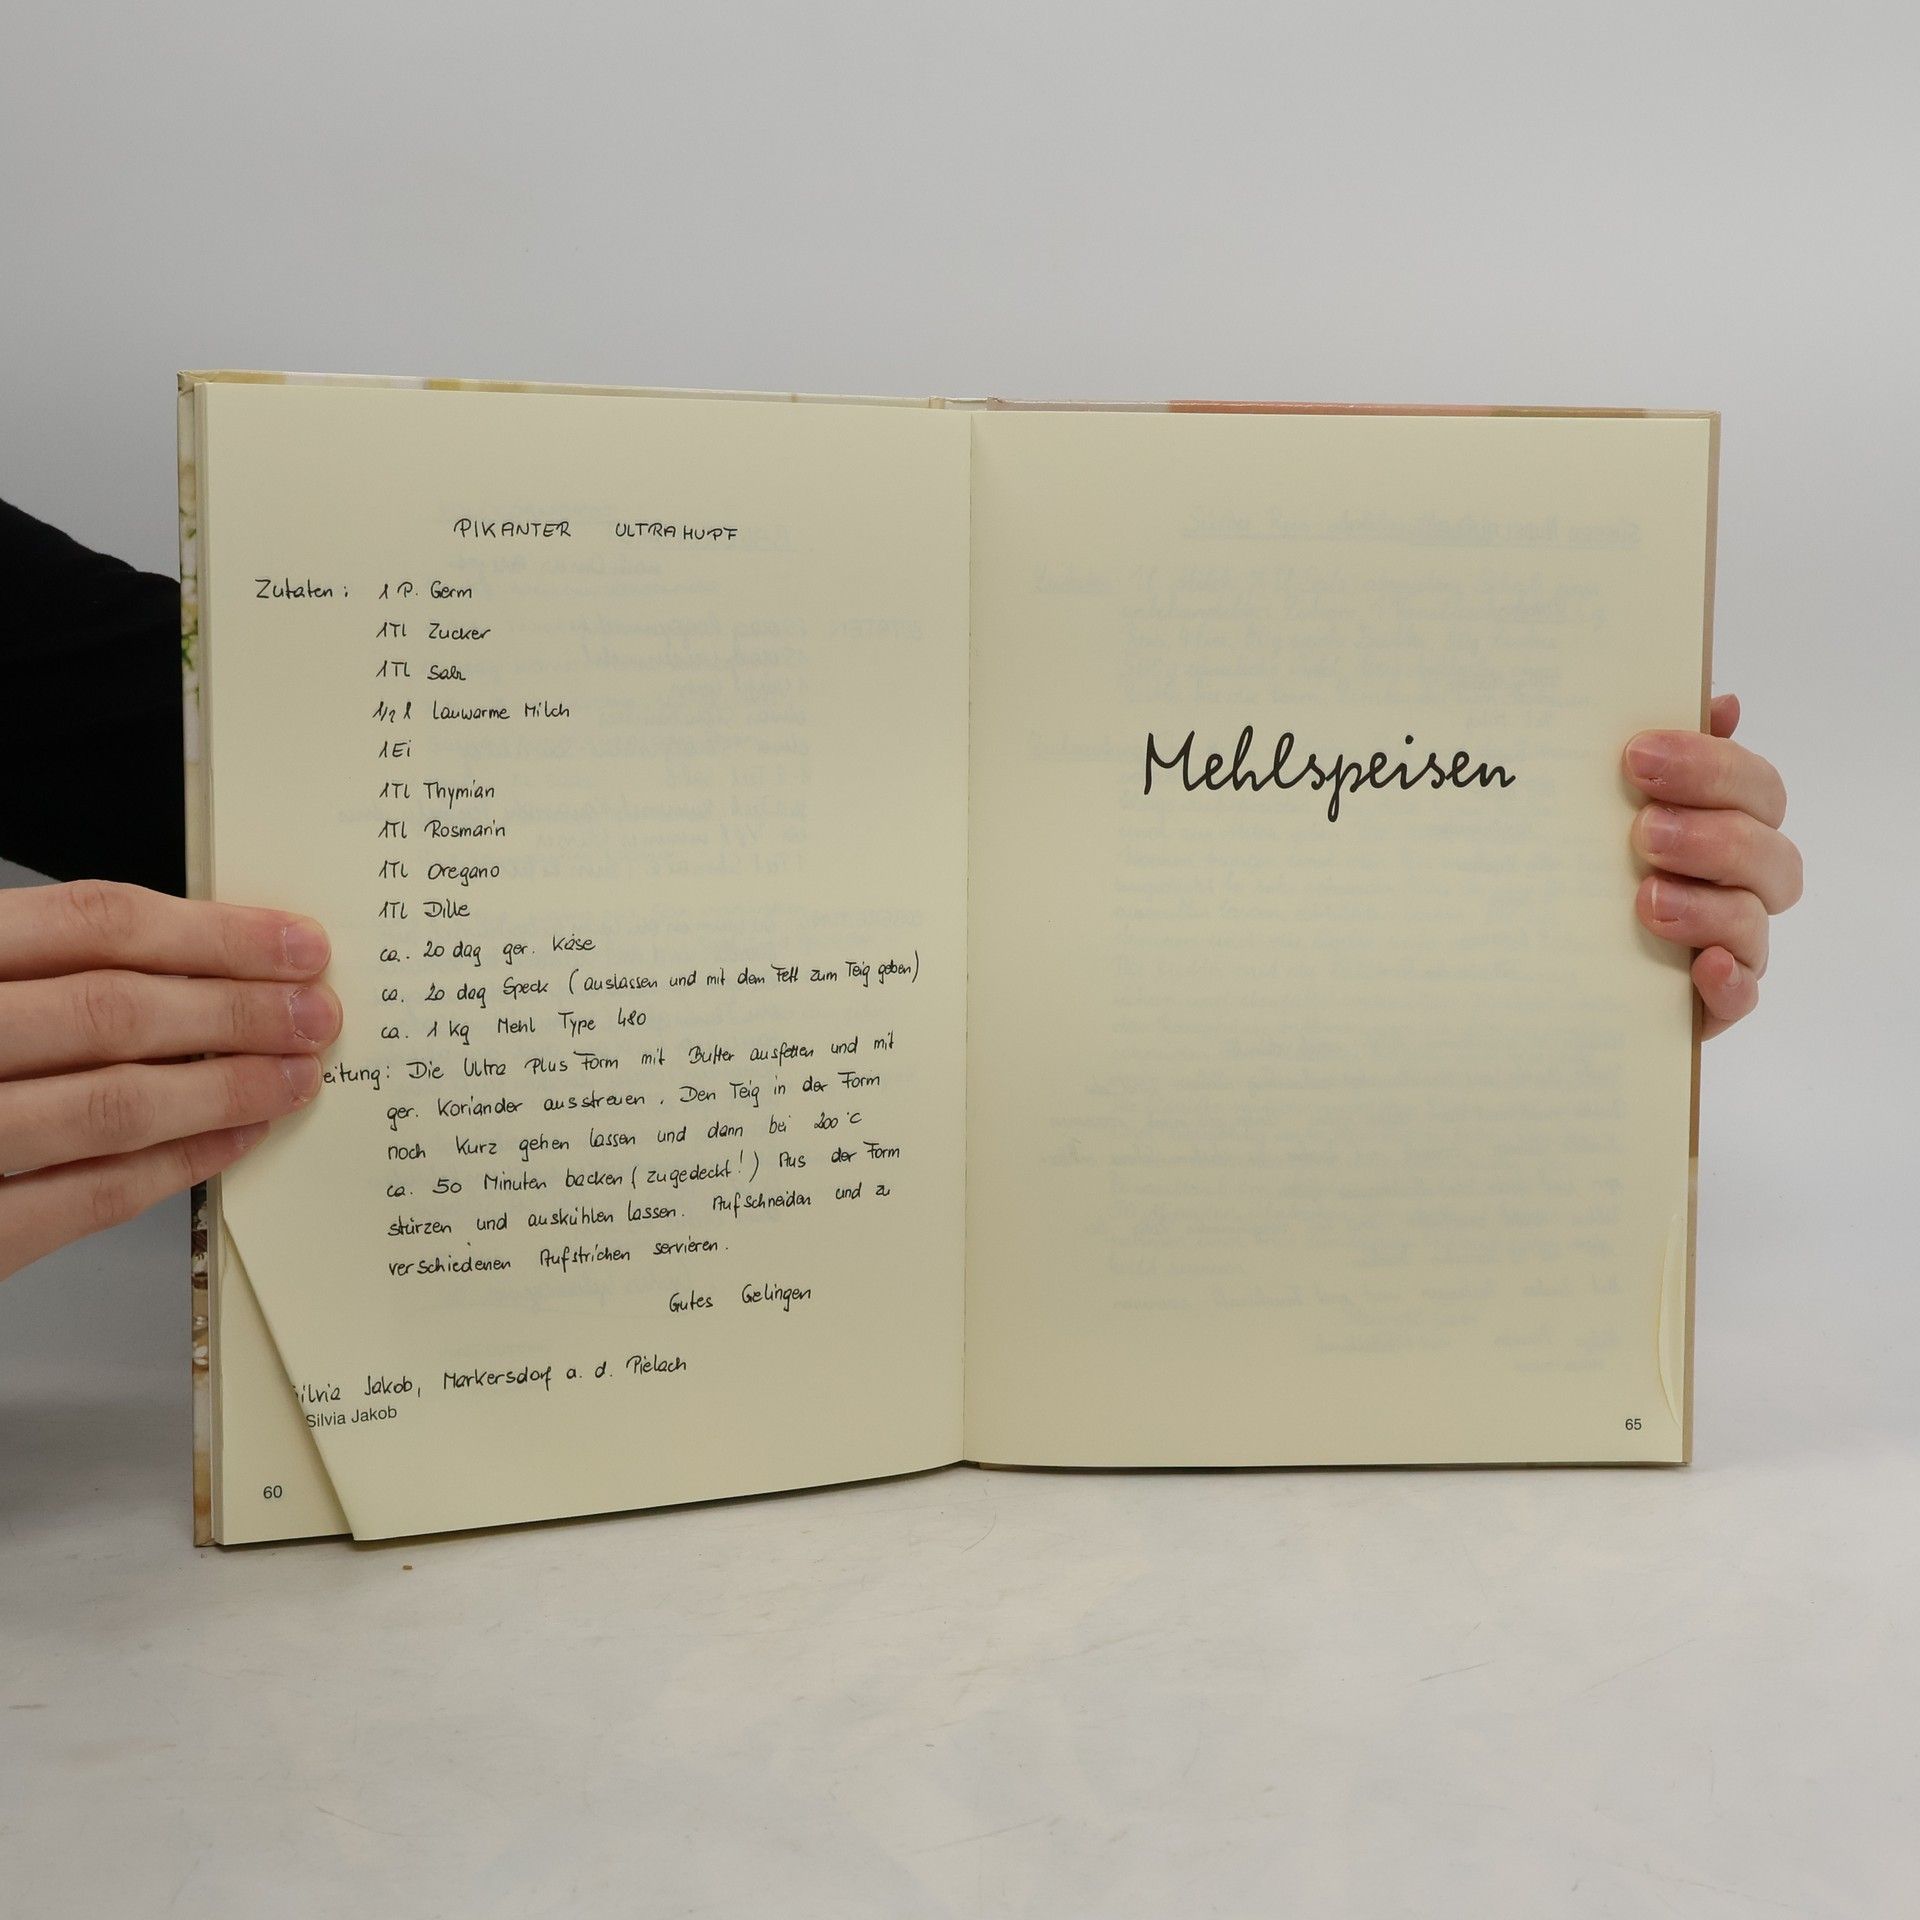 PIKANTER ULTRAHUPF
Zutaten: 1 P. Germ
1TL Zucker
1TL Salz
1/2 l lauwarme Milch
1Ei
1TL Thymian
1TL Rosmarin
1TL Oregano
1TL Dille
ca. 20 dag ger. Käse
ca. 20 dag Speck (auslassen und mit dem Fett zum Teig geben)
ca. 1 kg Mehl Type 480
eitung: Die Ultra Plus Form mit Butter ausfetten und mit
ger. Koriander ausstreuen. Den Teig in der Form
noch kurz gehen lassen und dann bei 200°C
ca. 50 Minuten backen (zugedeckt!) Aus der Form
stürzen und auskühlen lassen. Aufschneiden und zu
verschiedenen Aufstrichen servieren.
Gutes Gelingen
ilvia Jakob, Markersdorf a. d. Pielach
Silvia Jakob
60
Mehlspeisen
65